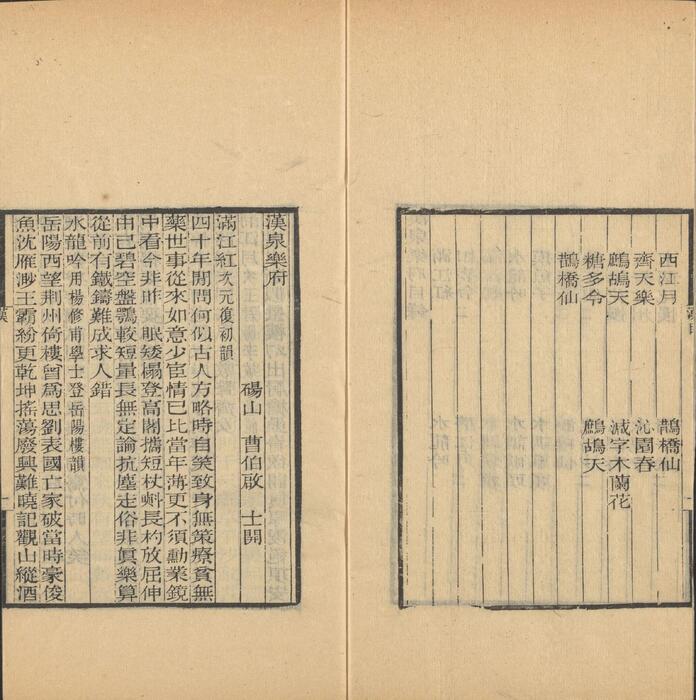 西江月 鵲橋仙
齊天樂 沁園春
鷓鴣天 減字木蘭花
糖多令 鷓鴣天
鵲橋仙
漢泉樂府
碭山 曹伯啟 士開
滿江紅次元復初韻
四十年閒問何似古人方略時自笑致身無策療貧無
藥世事從來如意少宦情已比當年薄更不須勳業鏡
中看今非昨 眠矮榻登高閣攜短杖㪺長杓放屈伸
由己碧空盤鶚較短量長無定論抗塵走俗非眞樂算
從前有鐵鑄難成求人錯
水龍吟用楊修甫學士登岳陽樓韻
岳陽西望荆州倚樓曾爲思劉表國亡家破當時豪俊
魚沈雁渺王霸紛更乾坤搖蕩廢興難曉記觀山縱酒
漢